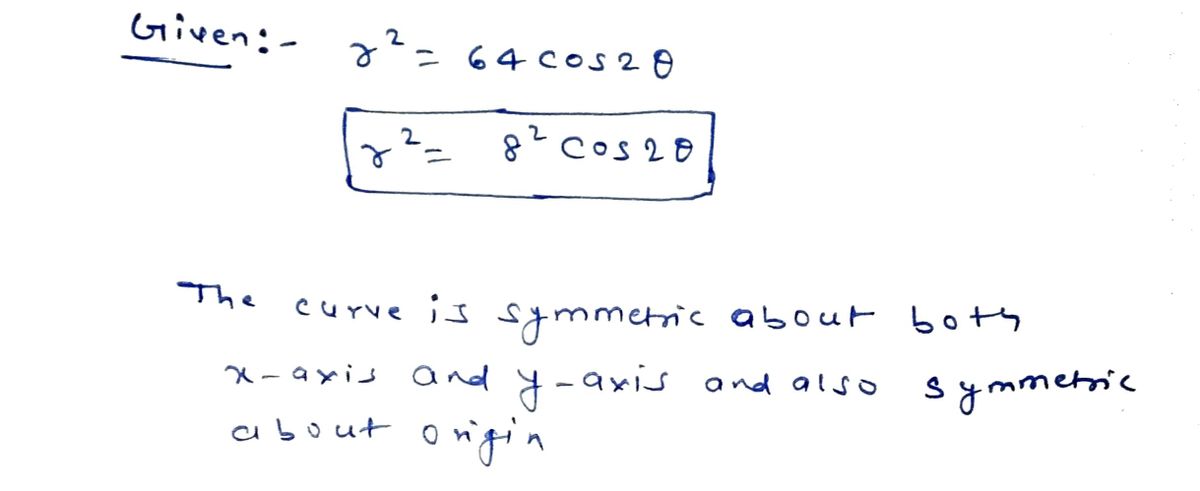 Given:- r² = 64 cos2θ
r² = 8² cos2θ
The curve is symmetric about both
x-axis and y-axis and also symmetric
about origin